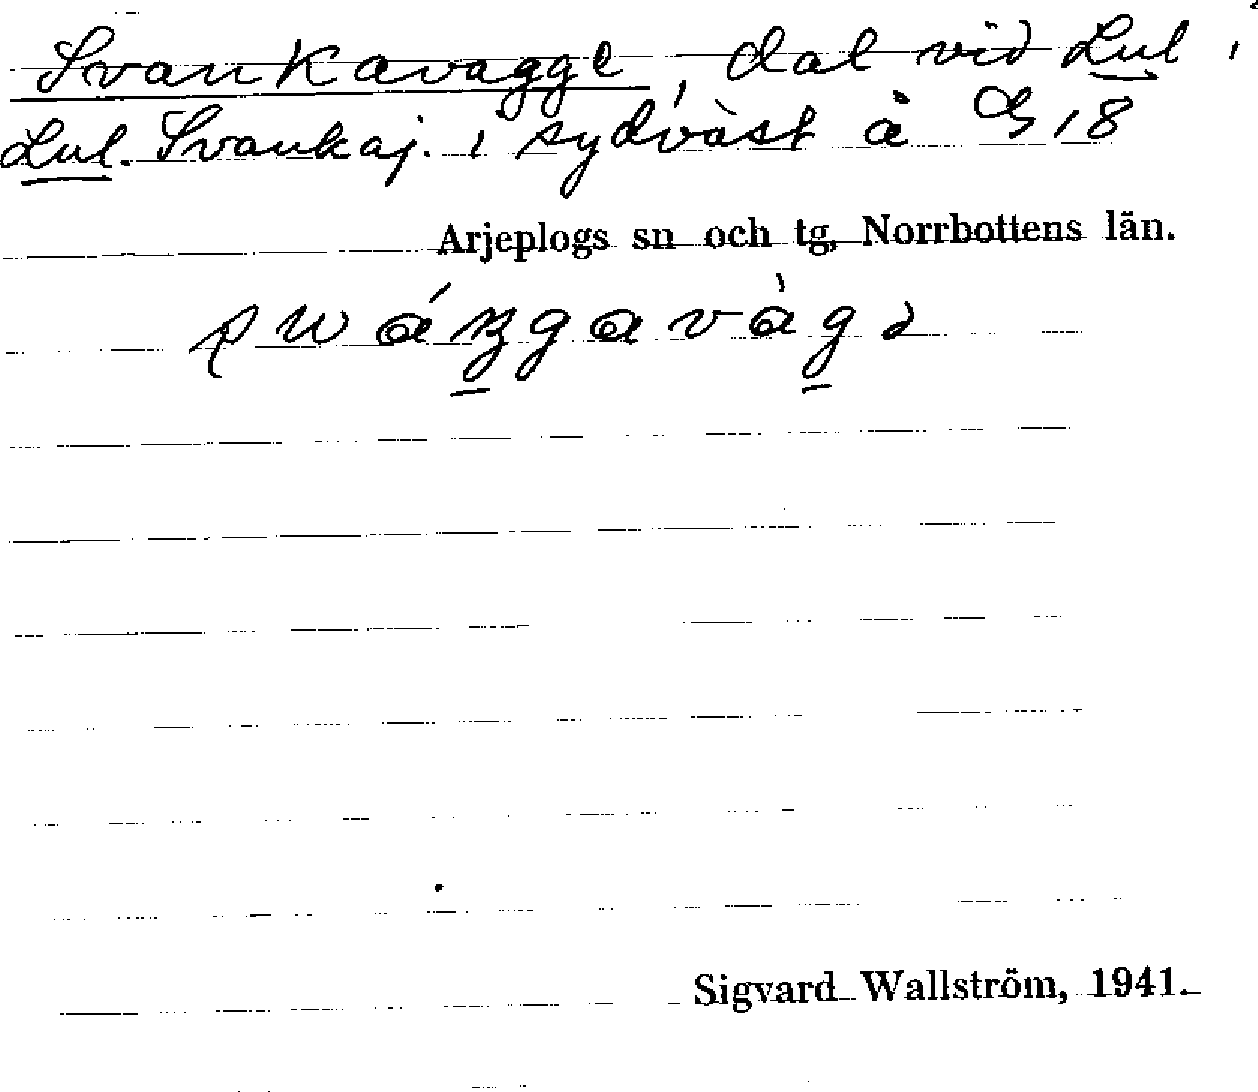 Svankavagge, dal vid Lul
Lul. Svankaj. i sydväst å G 18
Arjeplogs sn och tg, Norrbottens län.
Sigvard Wallström, 1941.